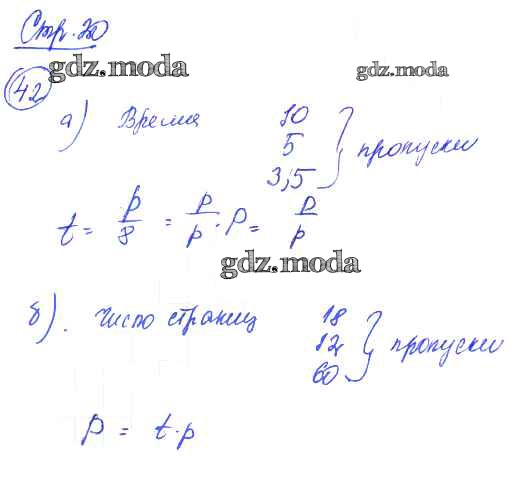 Стр. 20
gdz.moda
gdz.moda
42
а) Время 10
5
3,5 } пропуски
t = p/8 = p/p · p = p/p
gdz.moda
б). Число страниц 18
12
60 } пропуски
p = t·p